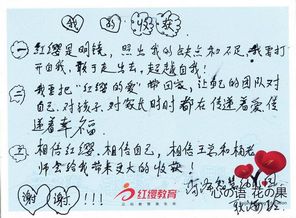 我的收获
一 红缨是明镜，照出我的缺点和不足，我要打
开自我，敢于走出去，超越自我！
二 我要把"红缨的爱"带回家，让自己的团队对
自己、对孩子、对家长时时都在传递着爱传
递着幸福。
三、相信红缨，相信自己，相信王总和杨老
师会给我带来更大的收获！
谢谢!!!
红缨教育
心の语 花の果